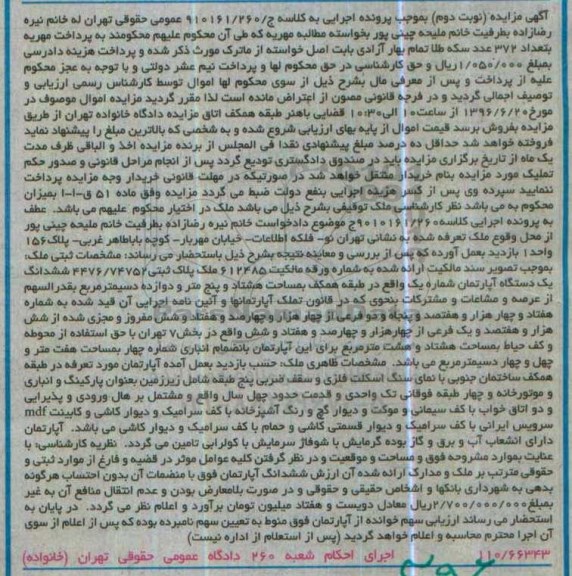 آگهی مزایده (نوبت دوم) بموجب پرونده اجرایی به کلاسه ج/۹۱۰۱۶۱/۲۶۰ عمومی حقوقی تهران له خانم نیره
رضازاده بطرفیت خانم ملیحه چینی پور بخواسته مطالبه مهریه که طی آن محکوم علیهم محکومند به پرداخت مهریه
بتعداد ۳۷۲ عدد سکه طلا تمام بهار آزادی بابت اصل خواسته از ماترک مورث ذکر شده و پرداخت هزینه دادرسی
بمبلغ ۱/۰۵۰/۰۰۰ریال و حق کارشناسی در حق محکوم لها و پرداخت نیم عشر دولتی و با توجه به عجز محکوم
علیه از پرداخت و پس از معرفی مال بشرح ذیل از سوی محکوم لها اموال توسط کارشناس رسمی ارزیابی و
توصیف اجمالی گردید و در فرجه قانونی مصون از اعتراض مانده است لذا مقرر گردید مزایده اموال موصوف در
مورخ۱۳۹۶/۶/۲۰ از ساعت۱۰ الی۱۰:۳۰ قضایی باهنر طبقه همکف اتاق مزایده دادگاه خانواده تهران از طریق
مزایده بفروش برسد قیمت اموال از پایه بهای ارزیابی شروع شده و به شخصی که بالاترین مبلغ را پیشنهاد نماید
فروخته خواهد شد حداقل ده درصد مبلغ پیشنهادی نقدا فی المجلس از برنده مزایده اخذ و الباقی ظرف مدت
یک ماه از تاریخ برگزاری مزایده باید در صندوق دادگستری تودیع گردد پس از انجام مراحل قانونی و صدور حکم
تملیک مورد مزایده بنام خریدار منتقل خواهد شد در صورتیکه در مهلت قانونی خریدار وجه مزایده پرداخت
ننمایید سپرده وی پس از کسر هزینه اجرایی بنفع دولت ضبط می گردد مزایده وفق ماده ۵۱ ق-ا-ا بمیزان
محکوم به می باشد نظر کارشناسی ملک توقیفی بشرح ذیل می باشد ملک در اختیار محکوم علیهم می باشد. عطف
به پرونده اجرایی کلاسه۹۱۰۱۶۱/۲۶۰ج موضوع دادخواست خانم نیره رضازاده بطرفیت خانم ملیحه چینی پور
از محل وقوع ملک تعرفه شده به نشانی تهران نو- فلکه اطلاعات- خیابان مهربار- کوچه باباطاهر غربی- پلاک۱۵۶
واحد۱ بازدید بعمل آورده که پس از بررسی و معاینه نتیجه بشرح ذیل باستحضار می رساند: مشخصات ثبتی ملک:
بموجب تصویر سند مالکیت ارائه شده به شماره ورقه مالکیت ۶۱۲۴۸۵ ملک پلاک ثبتی۴۴۷۶/۷۴۷۵۲ ششدانگ
یک دستگاه آپارتمان شماره یک واقع در طبقه همکف بمساحت هشتاد و پنج متر و دوازده دسیمترمربع بقدرالسهم
از عرصه و مشاعات و مشترکات بنحوی که در قانون تملک آپارتمانها و آئین نامه اجرایی آن قید شده به شماره
هفتاد و چهار هزار و هفتصد و پنجاه و دو فرعی از چهار هزار و چهارصد و هفتاد و شش مفروز و مجزی شده از شش
هزار و هفتصد و یک فرعی از چهارهزار و چهارصد و هفتاد و شش واقع در بخش۷ تهران با حق استفاده از محوطه
و کف حیاط بمساحت هشتاد و هشت مترمربع برای این آپارتمان بانضمام انباری شماره چهار بمساحت هفت متر و
چهل و چهار دسیمترمربع می باشد. مشخصات ظاهری ملک: حسب بازدید بعمل آمده آپارتمان مورد تعرفه در طبقه
همکف ساختمان جنوبی با نمای سنگ اسکلت فلزی و سقف ضربی پنج طبقه شامل زیرزمین بعنوان پارکینگ و انباری
و موتورخانه و چهار طبقه فوقانی تک واحدی و قدمت حدود چهل سال واقع و مشتمل بر هال ورودی و پذیرایی
و دو اتاق خواب با کف سیمانی و موکت و دیوار گچ و رنگ آشپزخانه با کف سرامیک و دیوار کاشی و کابینت mdf
سرویس ایرانی با کف سرامیک و دیوار قسمتی کاشی و حمام با کف سرامیک و دیوار کاشی می باشد. آپارتمان
دارای انشعاب آب و برق و گاز بوده گرمایش با شوفاژ سرمایش با کولرابی تامین می گردد. نظریه کارشناسی: با
عنایت بموارد مشروحه فوق و مساحت و موقعیت و در نظر گرفتن کلیه عوامل موثر در قضیه و فارغ از موارد ثبتی و
حقوقی مترتب بر ملک و مدارک ارائه شده آن ارزش ششدانگ آپارتمان فوق با منضمات آن بدون احتساب هرگونه
بدهی به شهرداری بانکها و اشخاص حقیقی و حقوقی و در صورت بلامعارض بودن و عدم انتقال منافع آن به غیر
بمبلغ۲/۷۰۰/۰۰۰/۰۰۰ریال معادل دویست و هفتاد میلیون تومان برآورد و اعلام نظر می گردد. در پایان به
استحضار می رساند ارزیابی سهم خوانده از آپارتمان فوق منوط به تعیین سهم نامبرده بوده که پس از اعلام از سوی
آن اجرا محترم محاسبه و اعلام خواهد گردید (پس از استعلام از اداره نیست)
۱۱۰/۶۶۳۴۳ اجرای احکام شعبه ۲۶۰ دادگاه عمومی حقوقی تهران (خانواده)